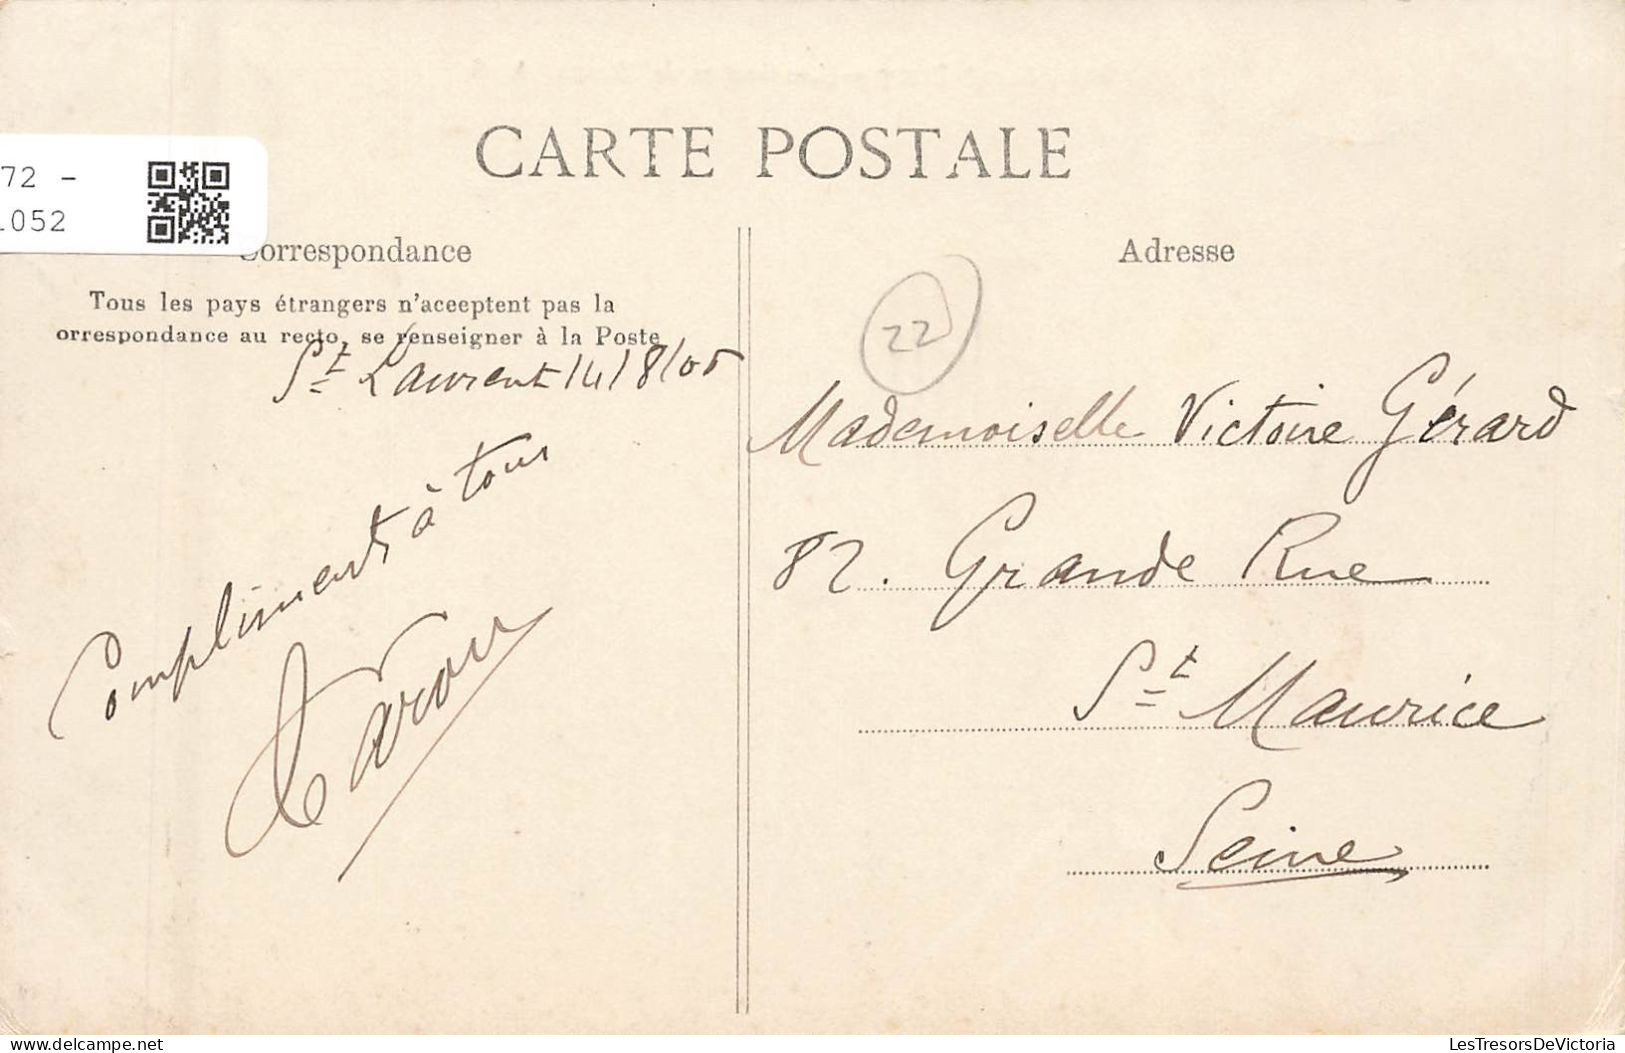 CARTE POSTALE
72 -
1052
Correspondance
Tous les pays étrangers n'aceeptent pas la
orrespondance au recto, se renseigner à la Poste
St Laurent 14/8/05
Compliments à tous
Adresse
22
Mademoiselle Victoire Gérard
82. Grande Rue
St Maurice
Seine
LesTresorsDeVictoria
delcampe.net